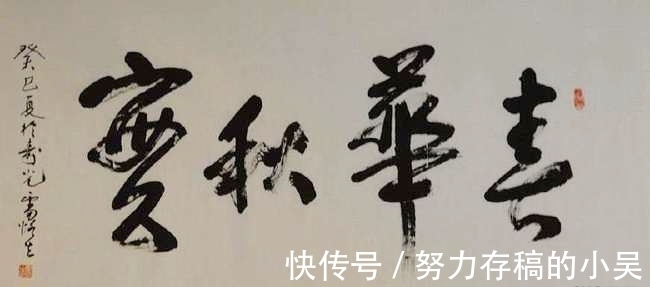 春華秋實
癸巳夏於寿光
快传号 / 努力存稿的小吴